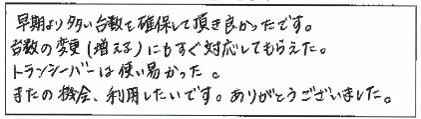 早期より多い台数を確保して頂き良かったです。
台数の変更(増える)にもすぐ対応してもらえた。
トランシーバーは使い易かった。
またの機会、利用したいです。ありがとうございました。